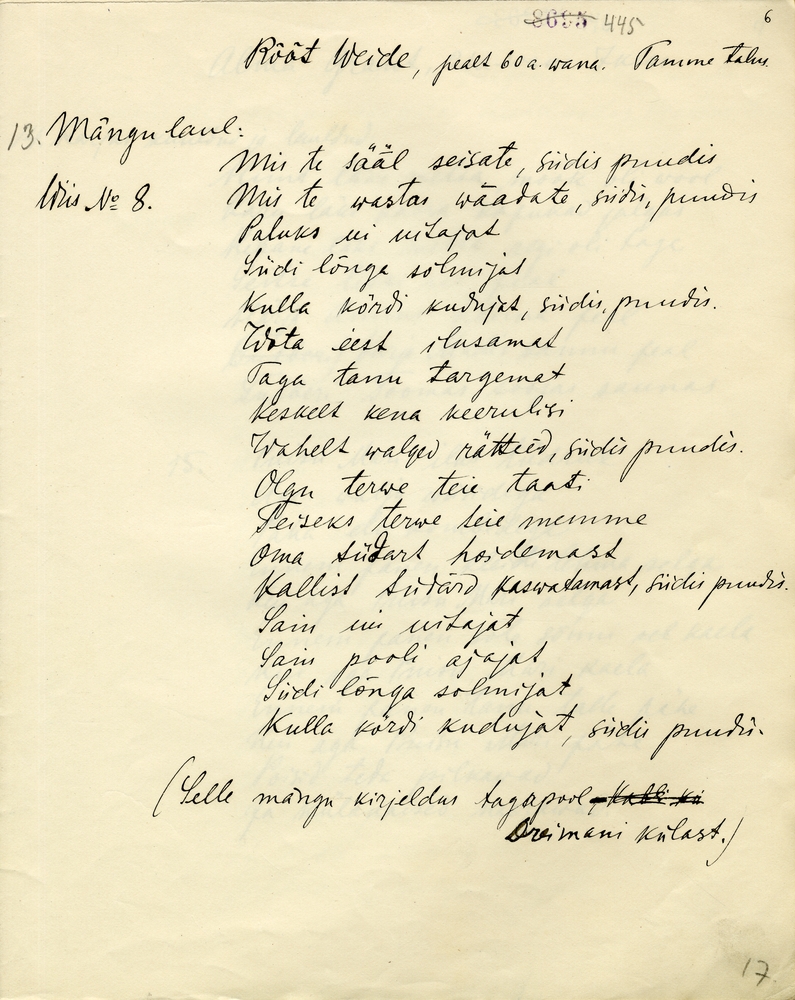 8695 445
6
Rööt Weide, pealt 60 a. wana. Tamme talus.
13. Mängu laul:
Wiis № 8.
Mis te sääl seisate, siidis puudis
Mis te wastas wäadate, siidis, puudis
Paluks ui uitajat
Siidi lõnga sõlmijat
Kulla kördi kudujat, siidis, puudis.
Wõta eest ilusamat
Taga tanu targemat
Keskelt kena keerulisi
Wahelt walged rätteid, siidis puudis.
Olgu terwe teie taati
Teiseks terwe teie memme
Oma südart hoidemast
Kallist südärd kaswatamast, siidis puudis.
Sain ui uitajat
Sain pooli ajajat
Siidi lõnga solmijat
Kulla kördi kudujat, siidis puudis.
(Selle mängu kirjeldus tagapool
Dreimani külast.)
17